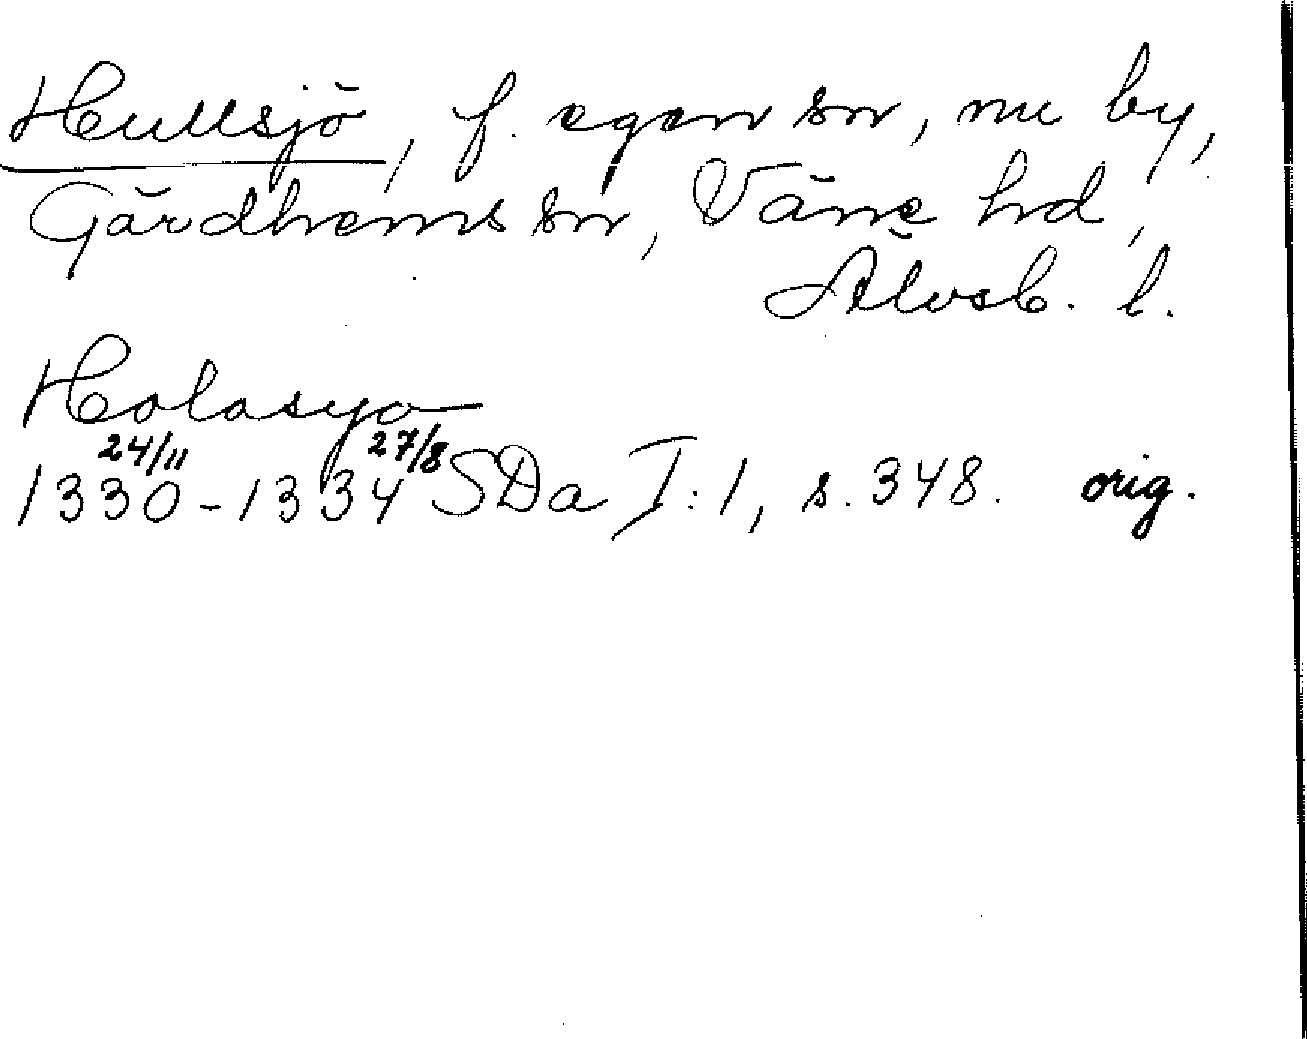 Hullsjö, f. egen sn, nu by,
Gärdhems sn, Väne hd,
Älvsb. l.
Holasyo
24/11 27/8
1330-1334 SDa I:1, s. 348. orig.